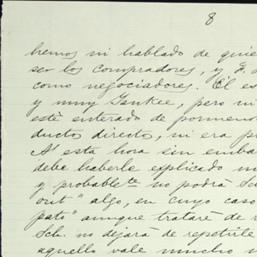 8
hemos ni hablado de quie
ser los compradores, y
como negociadores. El es
y muy Yankee, pero ni
esté enterado de pormeno
ducto directo, ni era p
A esta hora sin emba
debe haberle explicado m
y probable te no podrá Sc
out" algo, en cuyo caso
pato" aunque trataré de
Sch. no dejará de repetirle
aquello vale mucho m